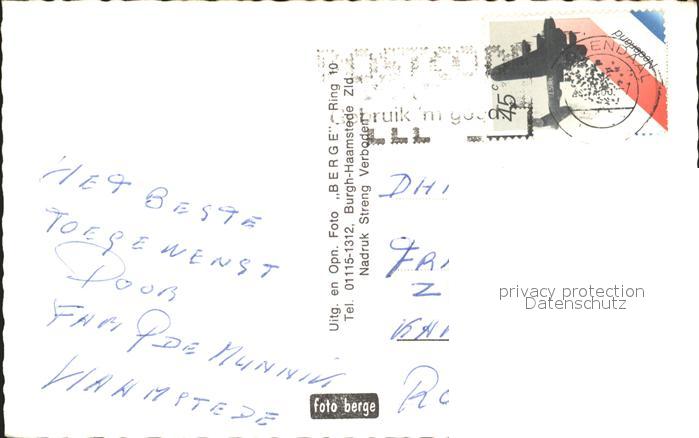 HET BESTE
TOEGEWENST
DOOR
FAM P DE MUNNIK
HAAMSTEDE
Uitg. en Opn. Foto „BERGE” Ring 10
Tel. 01115-1312, Burgh-Haamstede Zld.
Nadruk Streng Verboden
foto berge
Nederland
45 c
bruik 'm
DH
FA
privacy protection
Datenschutz